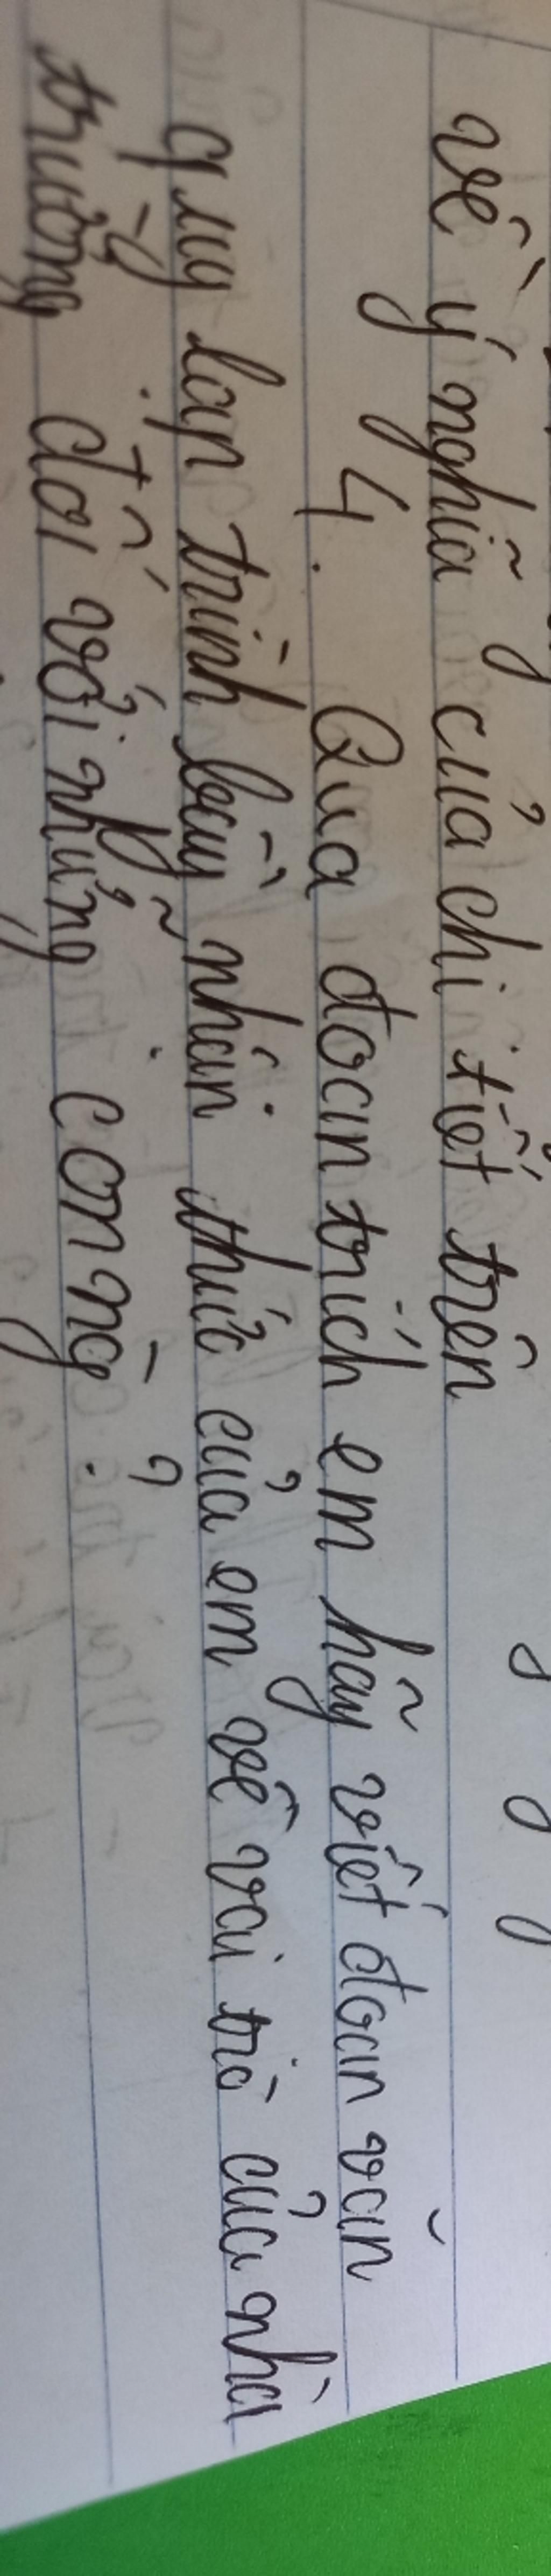 về ý nghĩa của chi tiết trên
4. Qua đoạn trích em hãy viết đoạn văn
quy lạp trình bày nhận thức của em về vai trò của nhà
trường đối với những con ng